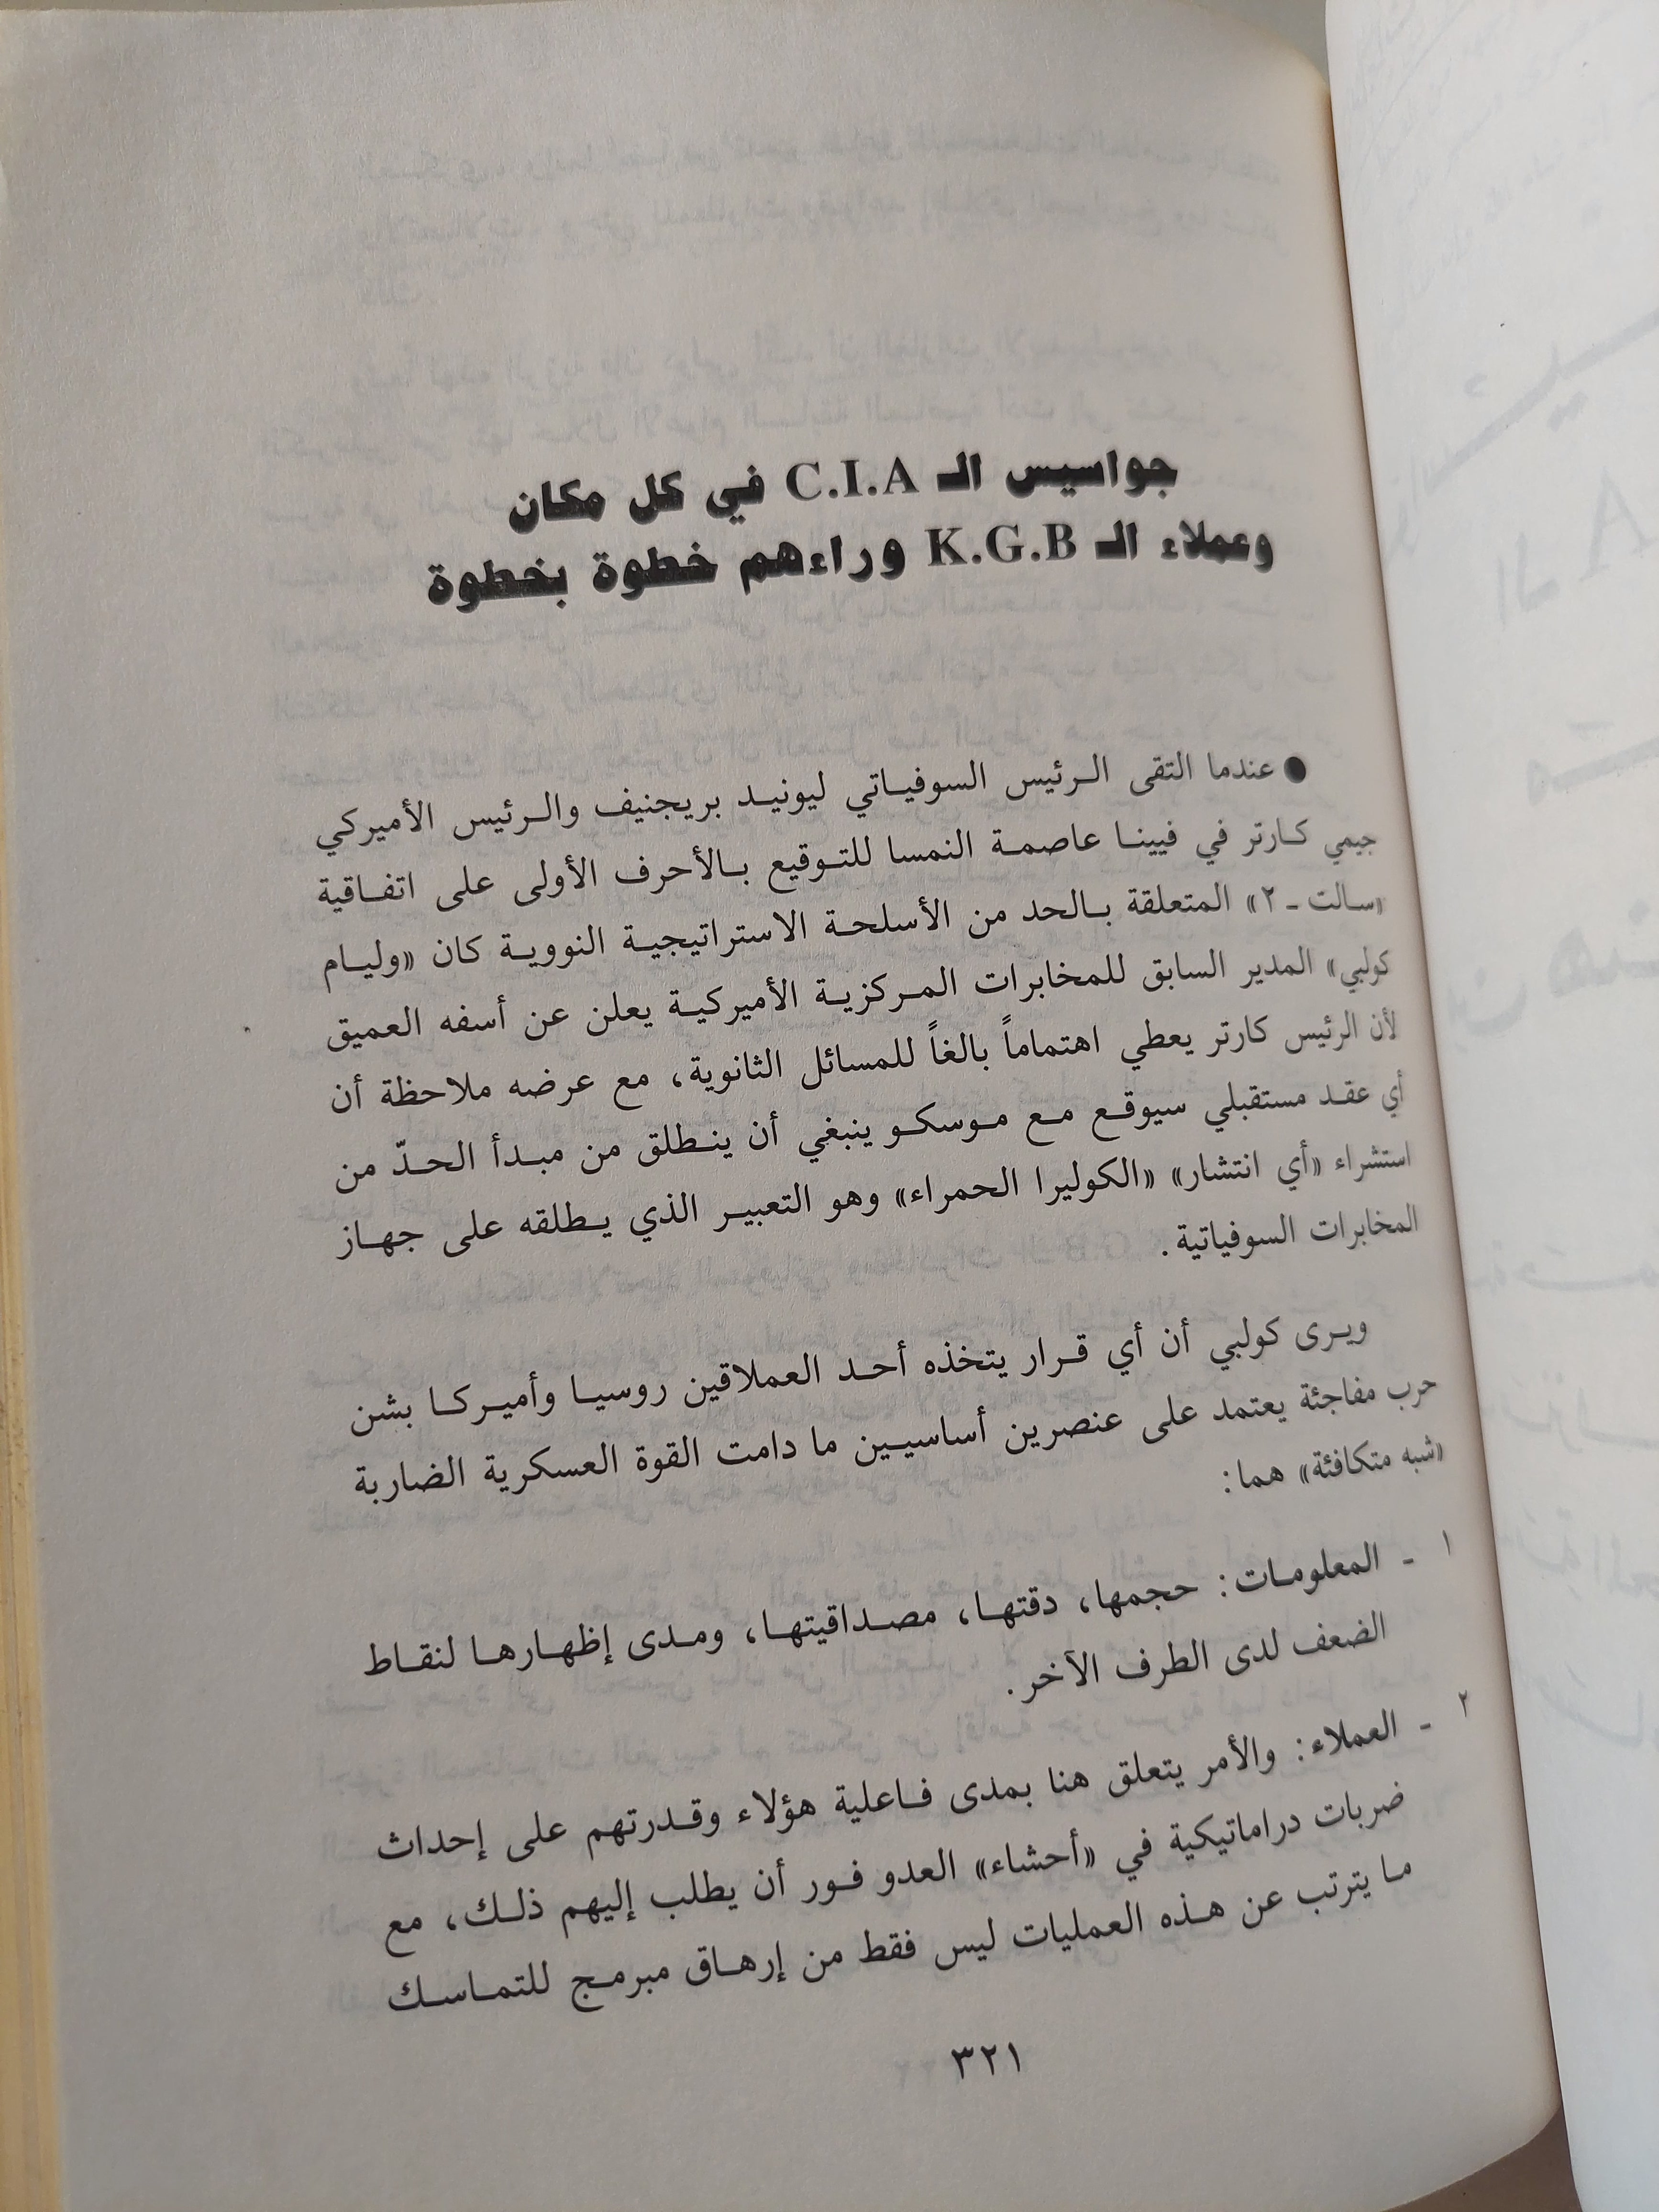 جواسيس الـ C.I.A في كل مكان
وعملاء الـ K.G.B وراءهم خطوة بخطوة
● عندما التقى الرئيس السوفياتي ليونيد بريجنيف والرئيس الأميركي
جيمي كارتر في فيينا عاصمة النمسا للتوقيع بالأحرف الأولى على اتفاقية
«سالت ـ ٢» المتعلقة بالحد من الأسلحة الاستراتيجية النووية كان «وليام
كولبي» المدير السابق للمخابرات المركزية الأميركية يعلن عن أسفه العميق
لأن الرئيس كارتر يعطي اهتماماً بالغاً للمسائل الثانوية، مع عرضه ملاحظة أن
أي عقد مستقبلي سيوقع مع موسكو ينبغي أن ينطلق من مبدأ الحدّ من
استشراء «أي انتشار» «الكوليرا الحمراء» وهو التعبير الذي يطلقه على جهاز
المخابرات السوفياتية.
ويرى كولبي أن أي قرار يتخذه أحد العملاقين روسيا وأميركا بشن
حرب مفاجئة يعتمد على عنصرين أساسيين ما دامت القوة العسكرية الضاربة
«شبه متكافئة» هما:
١ ـ المعلومات: حجمها، دقتها، مصداقيتها، ومدى إظهارها لنقاط
الضعف لدى الطرف الآخر.
٢ ـ العملاء: والأمر يتعلق هنا بمدى فاعلية هؤلاء وقدرتهم على إحداث
ضربات دراماتيكية في «أحشاء» العدو فور أن يطلب إليهم ذلك، مع
ما يترتب عن هذه العمليات ليس فقط من إرهاق مبرمج للتماسك
٣٢١